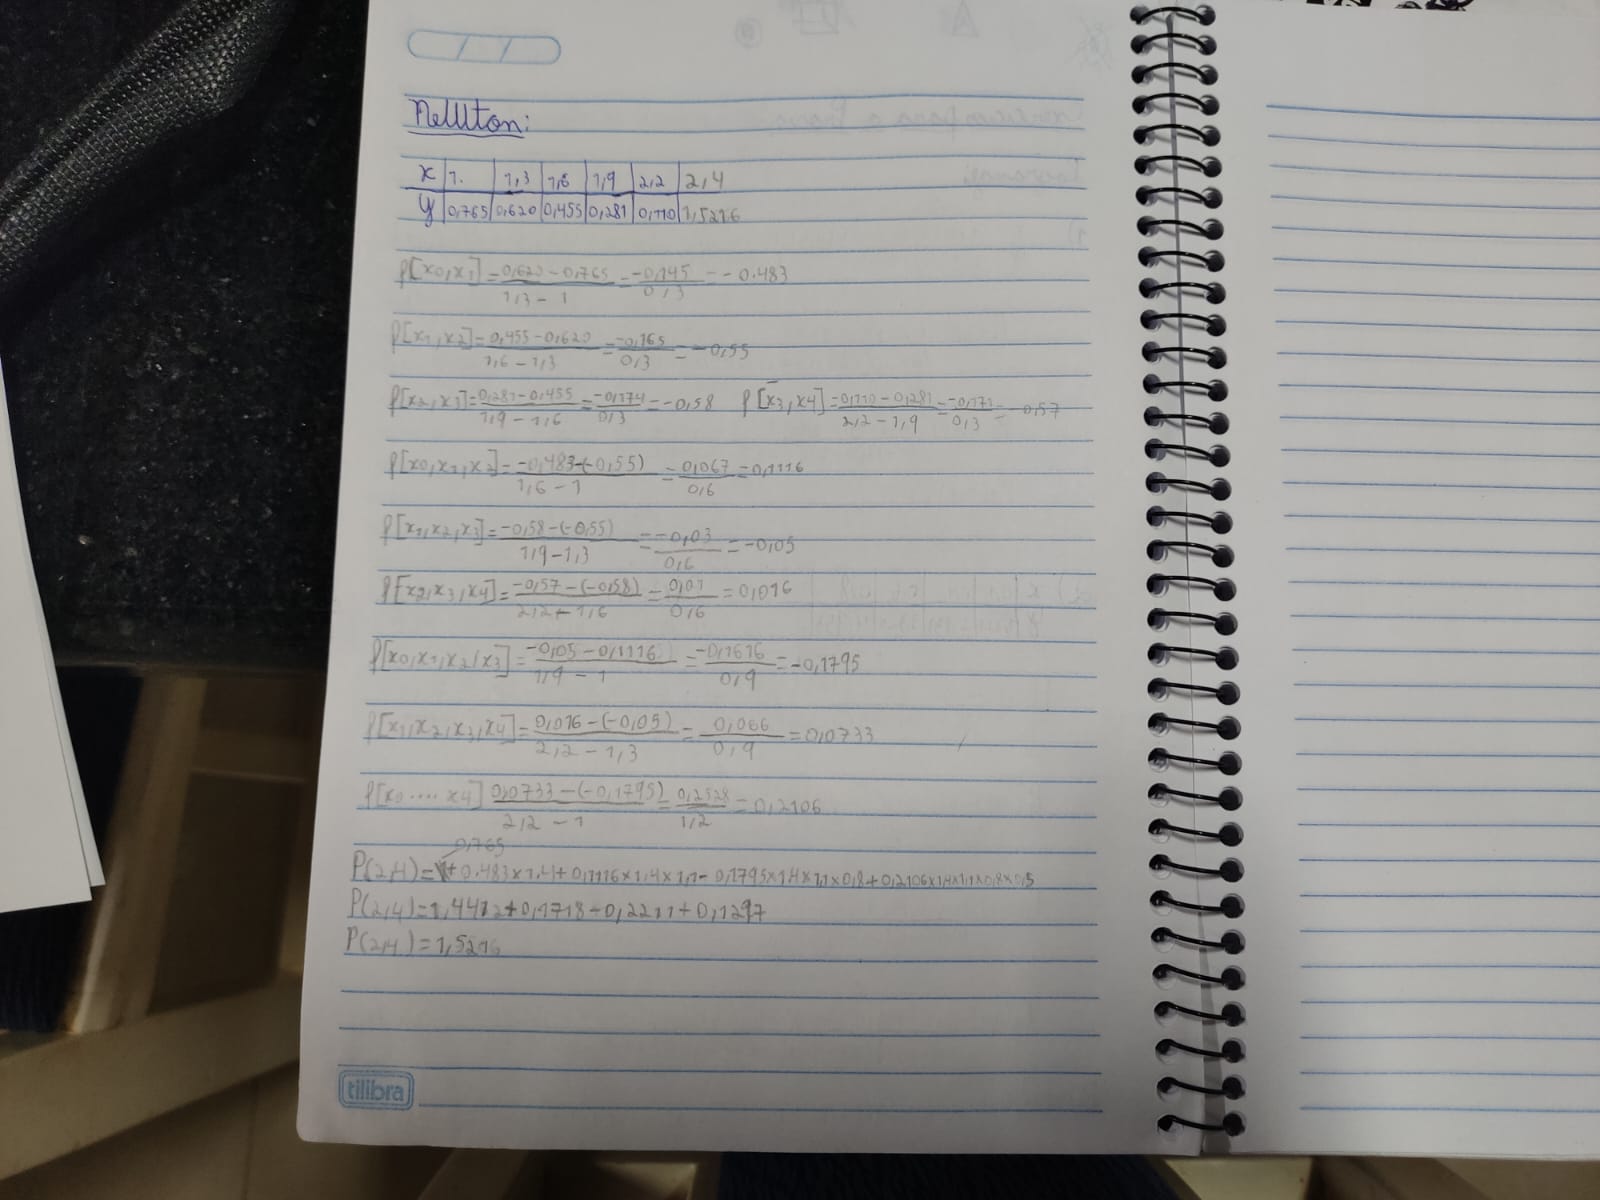 Newton:
x | 1. | 1,3 | 1,6 | 1,9 | 2,2 | 2,4
y | 0,765 | 0,620 | 0,455 | 0,281 | 0,110 | 1,5216
f[x0,x1] = 0,620 - 0,765 / 1,3 - 1 = -0,145 / 0,3 = -0.483
f[x1,x2] = 0,455 - 0,620 / 1,6 - 1,3 = -0,165 / 0,3 = -0,55
f[x2,x3] = 0,281 - 0,455 / 1,9 - 1,6 = -0,174 / 0,3 = -0,58 f[x3,x4] = 0,110 - 0,281 / 2,2 - 1,9 = -0,171 / 0,3 = -0,57
f[x0,x1,x2] = -0,483-(-0,55) / 1,6 - 1 = 0,067 / 0,6 = 0,1116
f[x1,x2,x3] = -0,58-(-0,55) / 1,9-1,3 = -0,03 / 0,6 = -0,05
f[x2,x3,x4] = -0,57-(-0,58) / 2,2-1,6 = 0,01 / 0,6 = 0,016
f[x0,x1,x2,x3] = -0,05-0,1116 / 1,9 - 1 = -0,1616 / 0,9 = -0,1795
f[x1,x2,x3,x4] = 0,016-(-0,05) / 2,2 - 1,3 = 0,066 / 0,9 = 0,0733
f[x0....x4] 0,0733-(-0,1795) / 2,2 - 1 = 0,2528 / 1,2 = 0,2106
0,765
P(2,4)= + 0.483×1.4+ 0,1116×1,4×1,1- 0,1795×1,4×1,1×0,8+0,2106×1,4×1,1×0,8×0,5
P(2,4)=1,4412+0,1718-0,2211+0,1297
P(2,4)=1,5216
tilibra